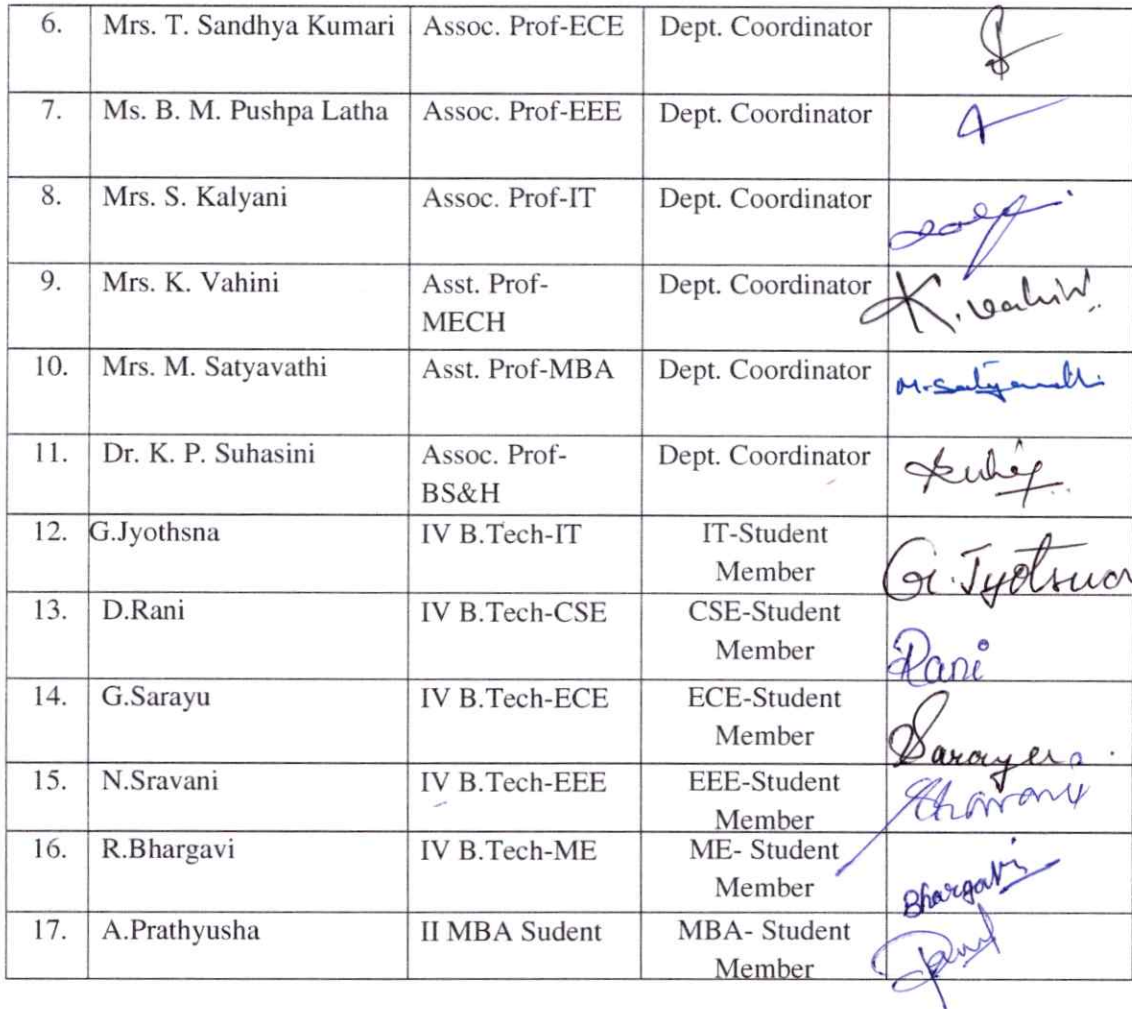 6. Mrs. T. Sandhya Kumari Assoc. Prof-ECE Dept. Coordinator
7. Ms. B. M. Pushpa Latha Assoc. Prof-EEE Dept. Coordinator
8. Mrs. S. Kalyani Assoc. Prof-IT Dept. Coordinator
9. Mrs. K. Vahini Asst. Prof- Dept. Coordinator K. Vahini
MECH
10. Mrs. M. Satyavathi Asst. Prof-MBA Dept. Coordinator M. Satyavathi
11. Dr. K. P. Suhasini Assoc. Prof- Dept. Coordinator
BS&H
12. G.Jyothsna IV B.Tech-IT IT-Student
Member G. Jyotsna
13. D.Rani IV B.Tech-CSE CSE-Student
Member Rani
14. G.Sarayu IV B.Tech-ECE ECE-Student
Member Sarayu
15. N.Sravani IV B.Tech-EEE EEE-Student
Member
16. R.Bhargavi IV B.Tech-ME ME- Student
Member Bhargavi
17. A.Prathyusha II MBA Sudent MBA- Student
Member